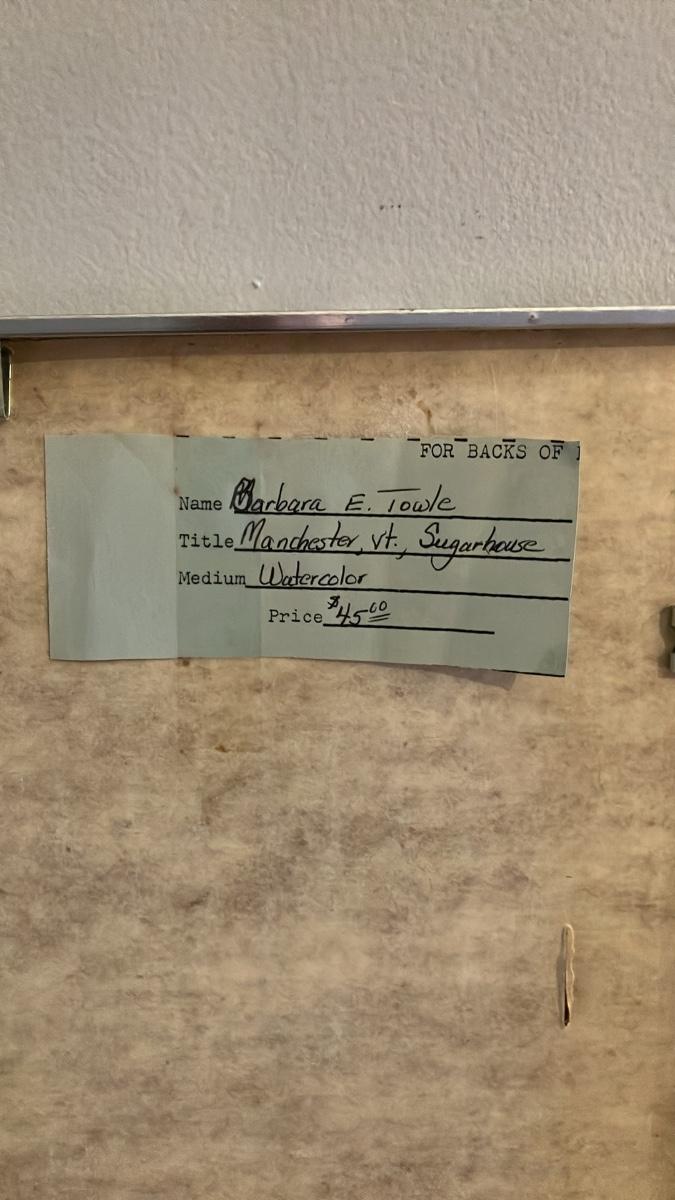 FOR BACKS OF
Name Barbara E. Towle
Title Manchester, Vt., Sugarhouse
Medium Watercolor
Price $45.00